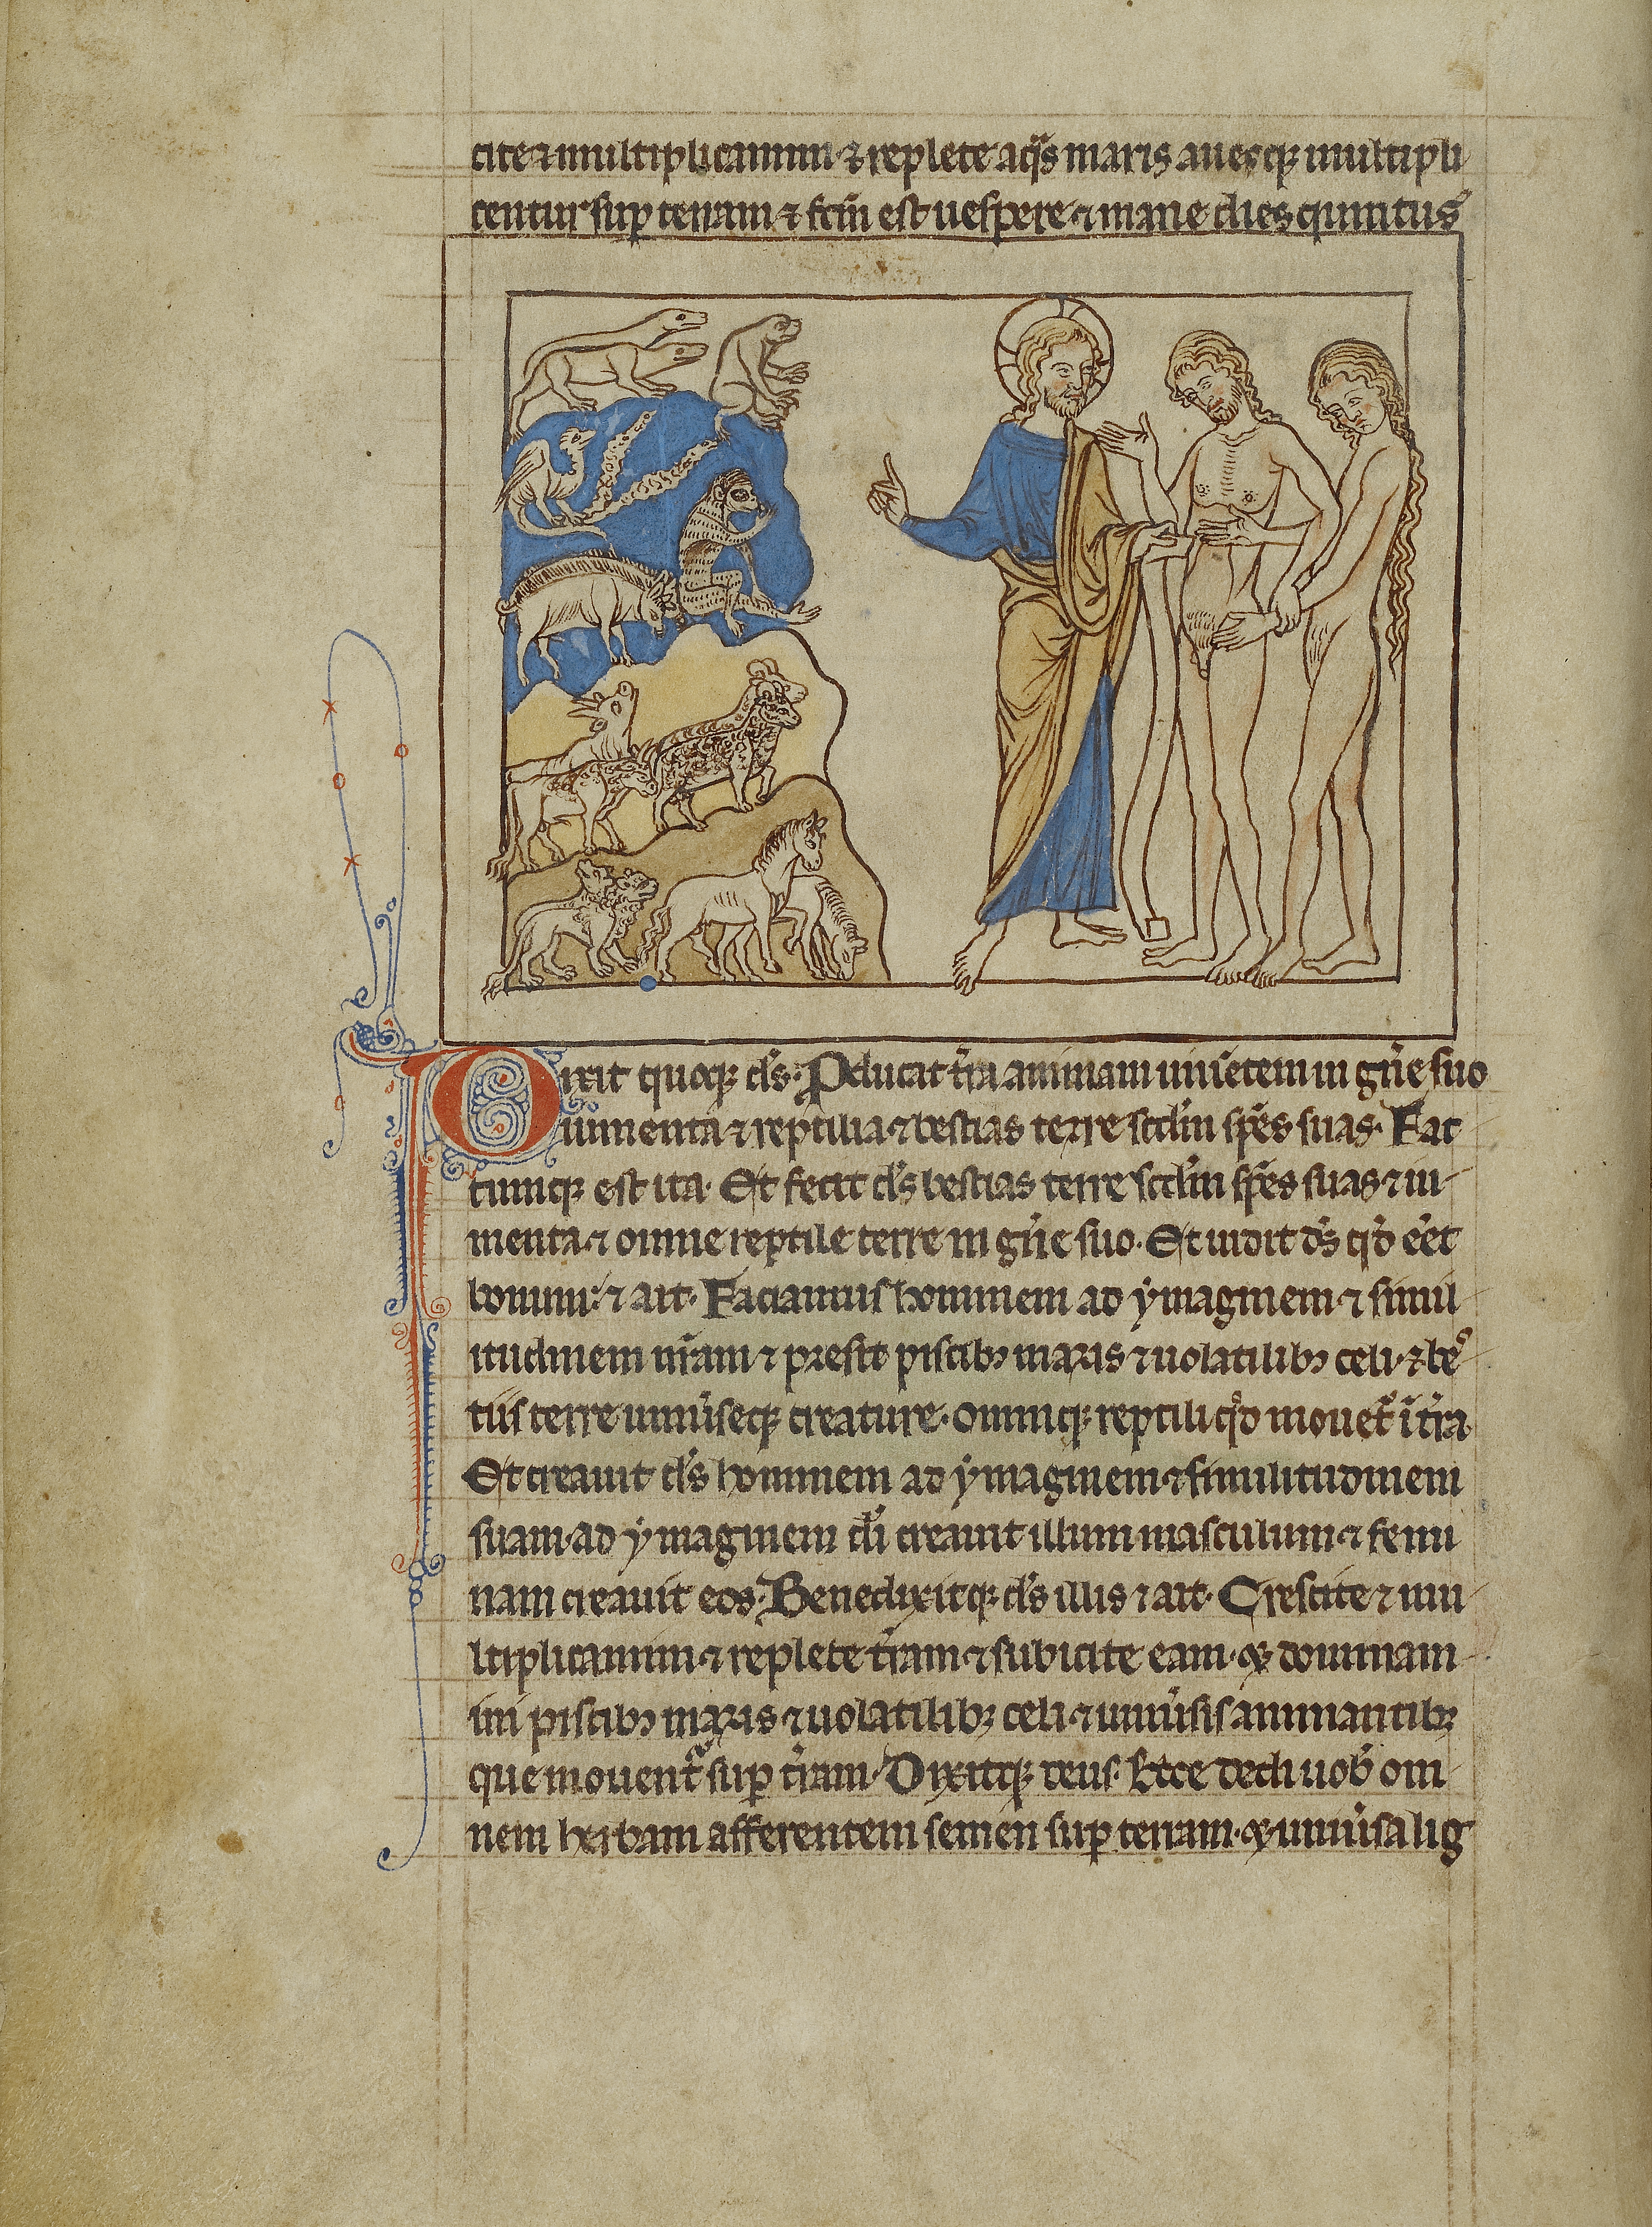 cite ⁊ multiplicamini ⁊ replete aq̃s maris auesqꝫ multipli
centur sup terram ⁊ fc̃m est uespere ⁊ mane dies quintus
Dixit quoqꝫ dſ̃. Pducat t̃ra animam uiũetem in gñe suo
iumenta ⁊ reptilia ⁊ bestias terre scđm spẽs suas. Fac
tumqꝫ est ita. Et fecit dſ̃ bestias terre scđm spẽs suas ⁊ iu
menta ⁊ omne reptile terre in gñe suo. Et uidit dſ̃ qđ eẽt
bonum: ⁊ ait. Faciamus hominem ad ymaginem ⁊ simil
itudinem nr̃am ⁊ presit piscibꝫ maris ⁊ uolatilibꝫ celi ⁊ be
tiis terre uniũseqꝫ creature. omniqꝫ reptili qđ mouet᷑ ĩ t̃ra
Et creauit dſ̃ hominem ad ymaginem ⁊ similitudinem
suam. ad ymaginem dĩ creauit illum masculum ⁊ femi
nam creauit eos. Benedixitqꝫ dſ̃ illis ⁊ ait. Crescite ⁊ mu
ltiplicamini ⁊ replete t̃ram ⁊ subicite eam. ⁊ dominam
ini piscibꝫ maris ⁊ uolatilibꝫ celi ⁊ uniũsis animantibꝫ
que mouent᷑ sup t̃ram. Dixitqꝫ deus. Ecce dedi uob̃ om
nem herbam afferentem semen sup terram. ⁊ uniũsa lig